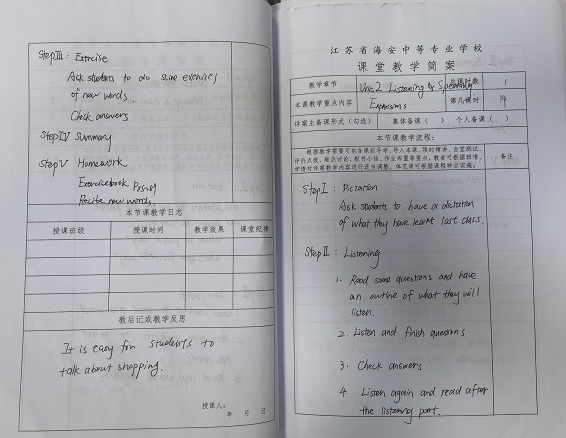 Step III: Exercise
Ask students to do some exercises
of new words
Check answers
Step IV Summary
Step V Homework
Exercisebook
Recite new words
本节课教学日志
授课班级 授课时间 教学效果 课堂纪律
教后记或教学反思
It is easy for students to
talk about shopping.
授课人:
年 月 日
江苏省海安中等专业学校
课堂教学简案
教学章节 Unit 2 Listening & Speaking 总课时数 1
本课教学重点内容 Expressions 第几课时 19
详案主备课形式(勾选) 集体备课( ) 个人备课( )
本节课教学流程:
根据教学需要可包含课前导学、导入本课、限时精讲、当堂测试、
评价点拨、难点讨论、板书小结、作业布置等要点。教者可根据班情、
学情对详案教学内容进行适当调整。体艺课可根据课程特点实施。
备注
Step I: Dictation
Ask students to have a dictation
of what they have learnt last class.
Step II: Listening
1. Read some questions and have
an outline of what they will
listen.
2. Listen and finish questions
3. Check answers
4. Listen again and read after
the listening part.